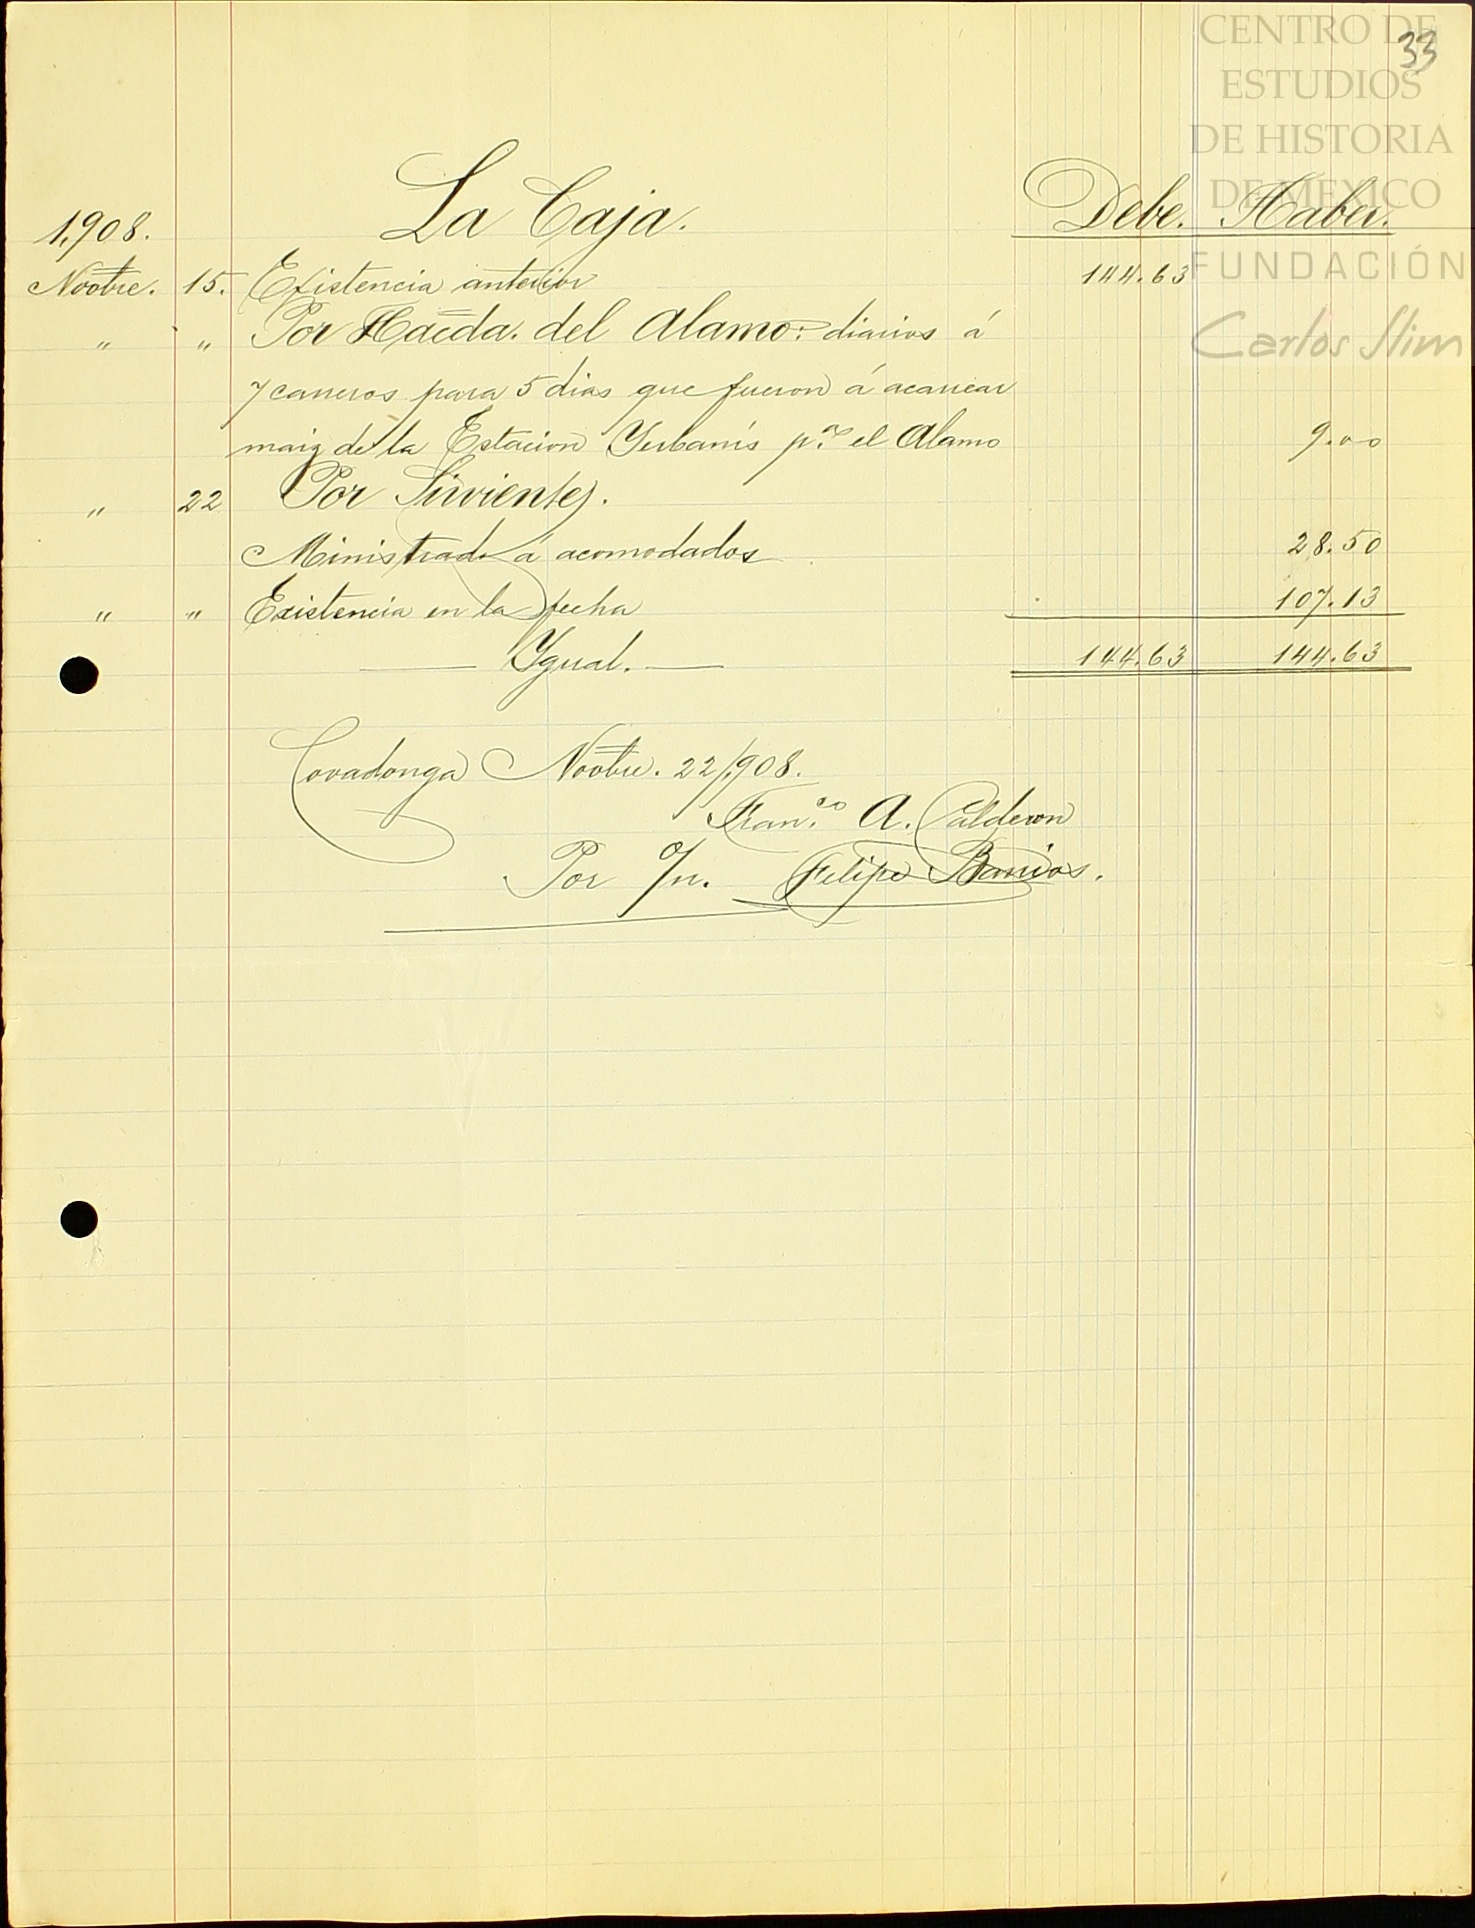 33
CENTRO DE
ESTUDIOS
DE HISTORIA
DE MEXICO
FUNDACIÓN
Carlos Slim
1,908. La Caja. Debe. Haber.
Novbre. 15. Existencia anterior 144.63
" " Por Hacda. del Alamo: diarios á
7 carreros para 5 dias que fueron á acarrear
maiz de la Estacion Yerbanís pa. el Alamo 9.00
" 22 Por Sirvientes.
Ministrado á acomodados 28.50
" " Existencia en la fecha 107.13
Ygual. 144.63 144.63
Covadonga Novbre. 22/908.
Franco. A. Calderon
Por o/n. Felipe